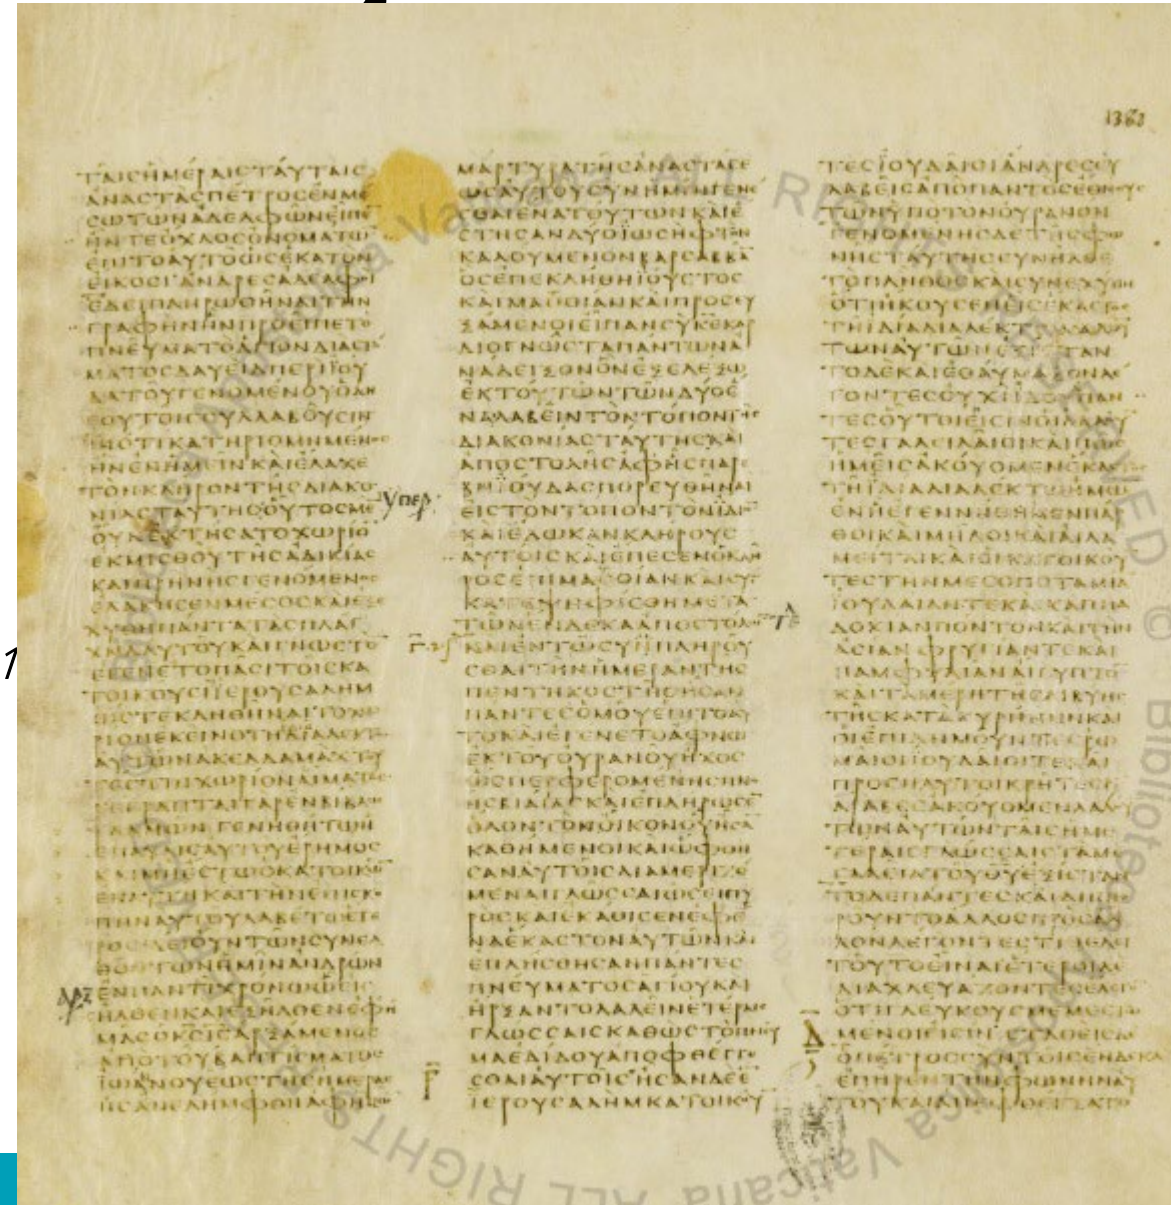 ΤΑΙϹΗΜΕΡΑΙϹΤΑΥΤΑΙϹ
ΑΝΑϹΤΑϹΠΕΤΡΟϹΕΝΜΕ
ϹΩΤΩΝΑΔΕΛΦΩΝΕΙΠΕ
ΗΝΤΕΟΧΛΟϹΟΝΟΜΑΤΩ
ΕΠΙΤΟΑΥΤΟΩϹΕΚΑΤΟΝ
ΕΙΚΟϹΙΑΝΔΡΕϹΑΔΕΛΦΟΙ
ΕΔΕΙΠΛΗΡΩΘΗΝΑΙΤΗΝ
ΓΡΑΦΗΝΗΝΠΡΟΕΙΠΕΤΟ
ΠΝΕΥΜΑΤΟΑΓΙΟΝΔΙΑϹΤΟ
ΜΑΤΟϹΔΑΥΕΙΔΠΕΡΙΙΟΥ
ΔΑΤΟΥΓΕΝΟΜΕΝΟΥΟΔΗ
ΓΟΥΤΟΙϹϹΥΛΛΑΒΟΥϹΙΝ
ΙΝΟΤΙΚΑΤΗΡΙΘΜΗΜΕΝΟϹ
ΗΝΕΝΗΜΕΙΝΚΑΙΕΛΑΧΕ
ΤΟΝΚΛΗΡΟΝΤΗϹΔΙΑΚΟ
ΝΙΑϹΤΑΥΤΗϹΟΥΤΟϹΜΕ
ΟΥΝΕΚΤΗϹΑΤΟΧΩΡΙΟ
ΕΚΜΙϹΘΟΥΤΗϹΑΔΙΚΙΑϹ
ΚΑΙΠΡΗΝΗϹΓΕΝΟΜΕΝΟϹ
ΕΛΑΚΗϹΕΝΜΕϹΟϹΚΑΙΕΞΕ
ΧΥΘΗΠΑΝΤΑΤΑϹΠΛΑΓ
ΧΝΑΑΥΤΟΥΚΑΙΓΝΩϹΤΟ
ΕΓΕΝΕΤΟΠΑϹΙΤΟΙϹΚΑ
ΤΟΙΚΟΥϹΙΙΕΡΟΥϹΑΛΗΜ
ΩϹΤΕΚΛΗΘΗΝΑΙΤΟΧΩ
ΡΙΟΝΕΚΕΙΝΟΤΗΔΙΑΛΕΚΤΩ
ΑΥΤΩΝΑΚΕΛΔΑΜΑΧΤΟΥ
ΤΕϹΤΙΝΧΩΡΙΟΝΑΙΜΑΤΟϹ
ΓΕΓΡΑΠΤΑΙΓΑΡΕΝΒΙΒΛΩ
ΨΑΛΜΩΝΓΕΝΗΘΗΤΩΗ
ΕΠΑΥΛΙϹΑΥΤΟΥΕΡΗΜΟϹ
ΚΑΙΜΗΕϹΤΩΟΚΑΤΟΙΚΩ
ΕΝΑΥΤΗΚΑΙΤΗΝΕΠΙϹΚΟ
ΠΗΝΑΥΤΟΥΛΑΒΕΤΩΕΤΕ
ΡΟϹΔΕΙΟΥΝΤΩΝϹΥΝΕΛ
ΘΟΝΤΩΝΗΜΙΝΑΝΔΡΩΝ
ΕΝΠΑΝΤΙΧΡΟΝΩΩΕΙϹ
ΗΛΘΕΝΚΑΙΕΞΗΛΘΕΝΕΦΗ
ΜΑϹΟΚϹΙϹΑΡΞΑΜΕΝΟϹ
ΑΠΟΤΟΥΒΑΠΤΙϹΜΑΤΟϹ
ΙΩΑΝΟΥΕΩϹΤΗϹΗΜΕΡΑϹ
ΗϹΑΝΕΛΗΜΦΘΗΑΦΗΜΩ
Υπερ
ΜΑΡΤΥΡΑΤΗϹΑΝΑϹΤΑϹΕ
ΩϹΑΥΤΟΥϹΥΝΗΜΙΝΓΕΝΕ
ϹΘΑΙΕΝΑΤΟΥΤΩΝΚΑΙΕ
ϹΤΗϹΑΝΔΥΟΙΩϹΗΦΤΟΝ
ΚΑΛΟΥΜΕΝΟΝΒΑΡϹΑΒΒΑ
ΟϹΕΠΕΚΛΗΘΗΙΟΥϹΤΟϹ
ΚΑΙΜΑΘΘΙΑΝΚΑΙΠΡΟϹΕΥ
ΞΑΜΕΝΟΙΕΙΠΑΝϹΥΚΕΚΑΡ
ΔΙΟΓΝΩϹΤΑΠΑΝΤΩΝΑ
ΝΑΔΕΙΞΟΝΟΝΕΞΕΛΕΞΩ
ΕΚΤΟΥΤΩΝΤΩΝΔΥΟΕ
ΝΑΛΑΒΕΙΝΤΟΝΤΟΠΟΝΤΗϹ
ΔΙΑΚΟΝΙΑϹΤΑΥΤΗϹΚΑΙ
ΑΠΟϹΤΟΛΗϹΑΦΗϹΠΑΡ
ΕΒΗΙΟΥΔΑϹΠΟΡΕΥΘΗΝΑΙ
ΕΙϹΤΟΝΤΟΠΟΝΤΟΝΙΔΙ
ΚΑΙΕΔΩΚΑΝΚΛΗΡΟΥϹ
ΑΥΤΟΙϹΚΑΙΕΠΕϹΕΝΟΚΛΗ
ΡΟϹΕΠΙΜΑΘΘΙΑΝΚΑΙϹΥΓ
ΚΑΤΕΨΗΦΙϹΘΗΜΕΤΑ
ΤΩΝΕΝΔΕΚΑΑΠΟϹΤΟΛΩ
ΚΑΙΕΝΤΩϹΥΝΠΛΗΡΟΥ
ϹΘΑΙΤΗΝΗΜΕΡΑΝΤΗϹ
ΠΕΝΤΗΚΟϹΤΗϹΗϹΑΝ
ΠΑΝΤΕϹΟΜΟΥΕΠΙΤΟΑΥ
ΤΟΚΑΙΕΓΕΝΕΤΟΑΦΝΩ
ΕΚΤΟΥΟΥΡΑΝΟΥΗΧΟϹ
ΩϹΠΕΡΦΕΡΟΜΕΝΗϹΠΝΟ
ΗϹΒΙΑΙΑϹΚΑΙΕΠΛΗΡΩϹΕ
ΟΛΟΝΤΟΝΟΙΚΟΝΟΥΗϹΑ
ΚΑΘΗΜΕΝΟΙΚΑΙΩΦΘΗ
ϹΑΝΑΥΤΟΙϹΔΙΑΜΕΡΙΖΟ
ΜΕΝΑΙΓΛΩϹϹΑΙΩϹΕΙΠΥ
ΡΟϹΚΑΙΕΚΑΘΙϹΕΝΕΦΕ
ΝΑΕΚΑϹΤΟΝΑΥΤΩΝΚΑΙ
ΕΠΛΗϹΘΗϹΑΝΠΑΝΤΕϹ
ΠΝΕΥΜΑΤΟϹΑΓΙΟΥΚΑΙ
ΗΡΞΑΝΤΟΛΑΛΕΙΝΕΤΕΡΑΙϹ
ΓΛΩϹϹΑΙϹΚΑΘΩϹΤΟΠΝΕΥ
ΜΑΕΔΙΔΟΥΑΠΟΦΘΕΓΓΕ
ϹΘΑΙΑΥΤΟΙϹΗϹΑΝΔΕΕ
ΙΕΡΟΥϹΑΛΗΜΚΑΤΟΙΚΟΥ
Γ
1383
ΤΕϹΙΟΥΔΑΙΟΙΑΝΔΡΕϹΕΥ
ΛΑΒΕΙϹΑΠΟΠΑΝΤΟϹΕΘΝΟΥϹ
ΤΩΝΥΠΟΤΟΝΟΥΡΑΝΟΝ
ΓΕΝΟΜΕΝΗϹΔΕΤΗϹΦΩ
ΝΗϹΤΑΥΤΗϹϹΥΝΗΛΘΕ
ΤΟΠΛΗΘΟϹΚΑΙϹΥΝΕΧΥΘΗ
ΟΤΙΗΚΟΥϹΕΝΕΙϹΕΚΑϹΤΟϹ
ΤΗΙΔΙΑΔΙΑΛΕΚΤΩΛΑΛΟΥ
ΤΩΝΑΥΤΩΝΕΞΙϹΤΑΝ
ΤΟΔΕΚΑΙΕΘΑΥΜΑΖΟΝΛΕ
ΓΟΝΤΕϹΟΥΧΙΙΔΟΥΠΑΝ
ΤΕϹΟΥΤΟΙΕΙϹΙΝΟΙΛΑΛΟΥ
ΤΕϹΓΑΛΕΙΛΑΙΟΙΚΑΙΠΩϹ
ΗΜΕΙϹΑΚΟΥΟΜΕΝΕΚΑϹ
ΤΗΙΔΙΑΔΙΑΛΕΚΤΩΗΜΩ
ΕΝΗΕΓΕΝΝΗΘΗΜΕΝΠΑΡ
ΘΟΙΚΑΙΜΗΔΟΙΚΑΙΑΙΛΑ
ΜΕΙΤΑΙΚΑΙΟΙΚΑΤΟΙΚΟΥ
ΤΕϹΤΗΝΜΕϹΟΠΟΤΑΜΙΑ
ΙΟΥΔΑΙΑΝΤΕΚΑΙΚΑΠΠΑ
ΔΟΚΙΑΝΠΟΝΤΟΝΚΑΙΤΗΝ
ΑϹΙΑΝΦΡΥΓΙΑΝΤΕΚΑΙ
ΠΑΜΦΥΛΙΑΝΑΙΓΥΠΤΟ
ΚΑΙΤΑΜΕΡΗΤΗϹΛΙΒΥΗϹ
ΤΗϹΚΑΤΑΚΥΡΗΝΗΝΚΑΙ
ΟΙΕΠΙΔΗΜΟΥΝΤΕϹΡΩ
ΜΑΙΟΙΙΟΥΔΑΙΟΙΤΕΚΑΙ
ΠΡΟϹΗΛΥΤΟΙΚΡΗΤΕϹΚΑΙ
ΑΡΑΒΕϹΑΚΟΥΟΜΕΝΛΑΛΟΥ
ΤΩΝΑΥΤΩΝΤΑΙϹΗΜΕ
ΤΕΡΑΙϹΓΛΩϹϹΑΙϹΤΑΜΕ
ΓΑΛΕΙΑΤΟΥΘΥΕΞΙϹΤΑΝ
ΤΟΔΕΠΑΝΤΕϹΚΑΙΔΙΗΠΟ
ΡΟΥΝΤΟΑΛΛΟϹΠΡΟϹΑΛ
ΛΟΝΛΕΓΟΝΤΕϹΤΙΘΕΛΕΙ
ΤΟΥΤΟΕΙΝΑΙΕΤΕΡΟΙΔΕ
ΔΙΑΧΛΕΥΑΖΟΝΤΕϹΕΛΕΓ
ΟΤΙΓΛΕΥΚΟΥϹΜΕΜΕϹΤΩ
ΜΕΝΟΙΕΙϹΙΝϹΤΑΘΕΙϹΔΕ
ΟΠΕΤΡΟϹϹΥΝΤΟΙϹΕΝΔΕΚΑ
ΕΠΗΡΕΝΤΗΝΦΩΝΗΝΑΥ
ΤΟΥΚΑΙΑΠΕΦΘΕΓΞΑΤΟ
Δ
ALL RIGHTS RESERVED © Biblioteca Apostolica Vaticana
1